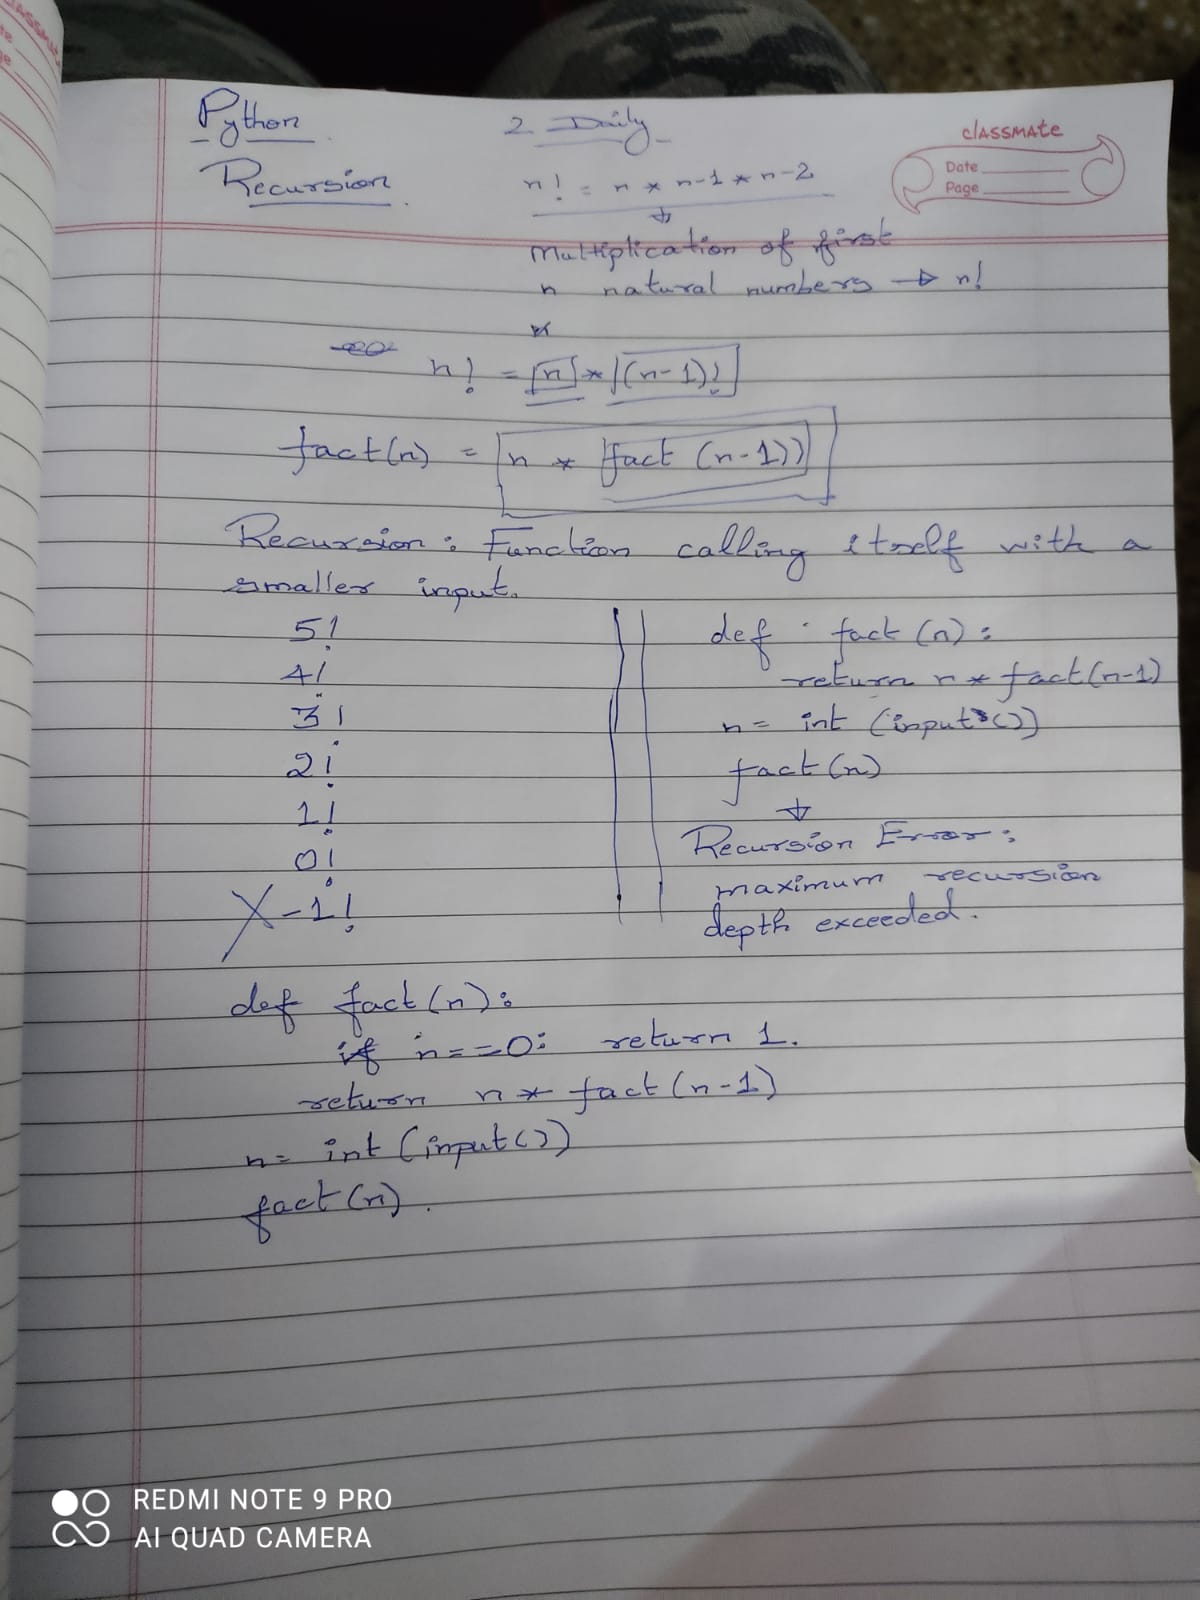 Python
Recursion.
2. Daily
classmate
Date
Page
n! = n * n-1 * n-2
Multiplication of first
n natural numbers → n!
n! = n * (n-1)!
fact(n) = n * fact (n-1))
Recursion: Function calling itself with a
smaller input.
5!
4!
3!
2!
1!
0!
X -1!
def fact(n):
return n * fact(n-1)
n = int (input())
fact(n)
↓
Recursion Error:
maximum recursion
depth exceeded.
def fact(n):
if n==0: return 1.
return n * fact(n-1)
n= int (input())
fact(n).
REDMI NOTE 9 PRO
AI QUAD CAMERA